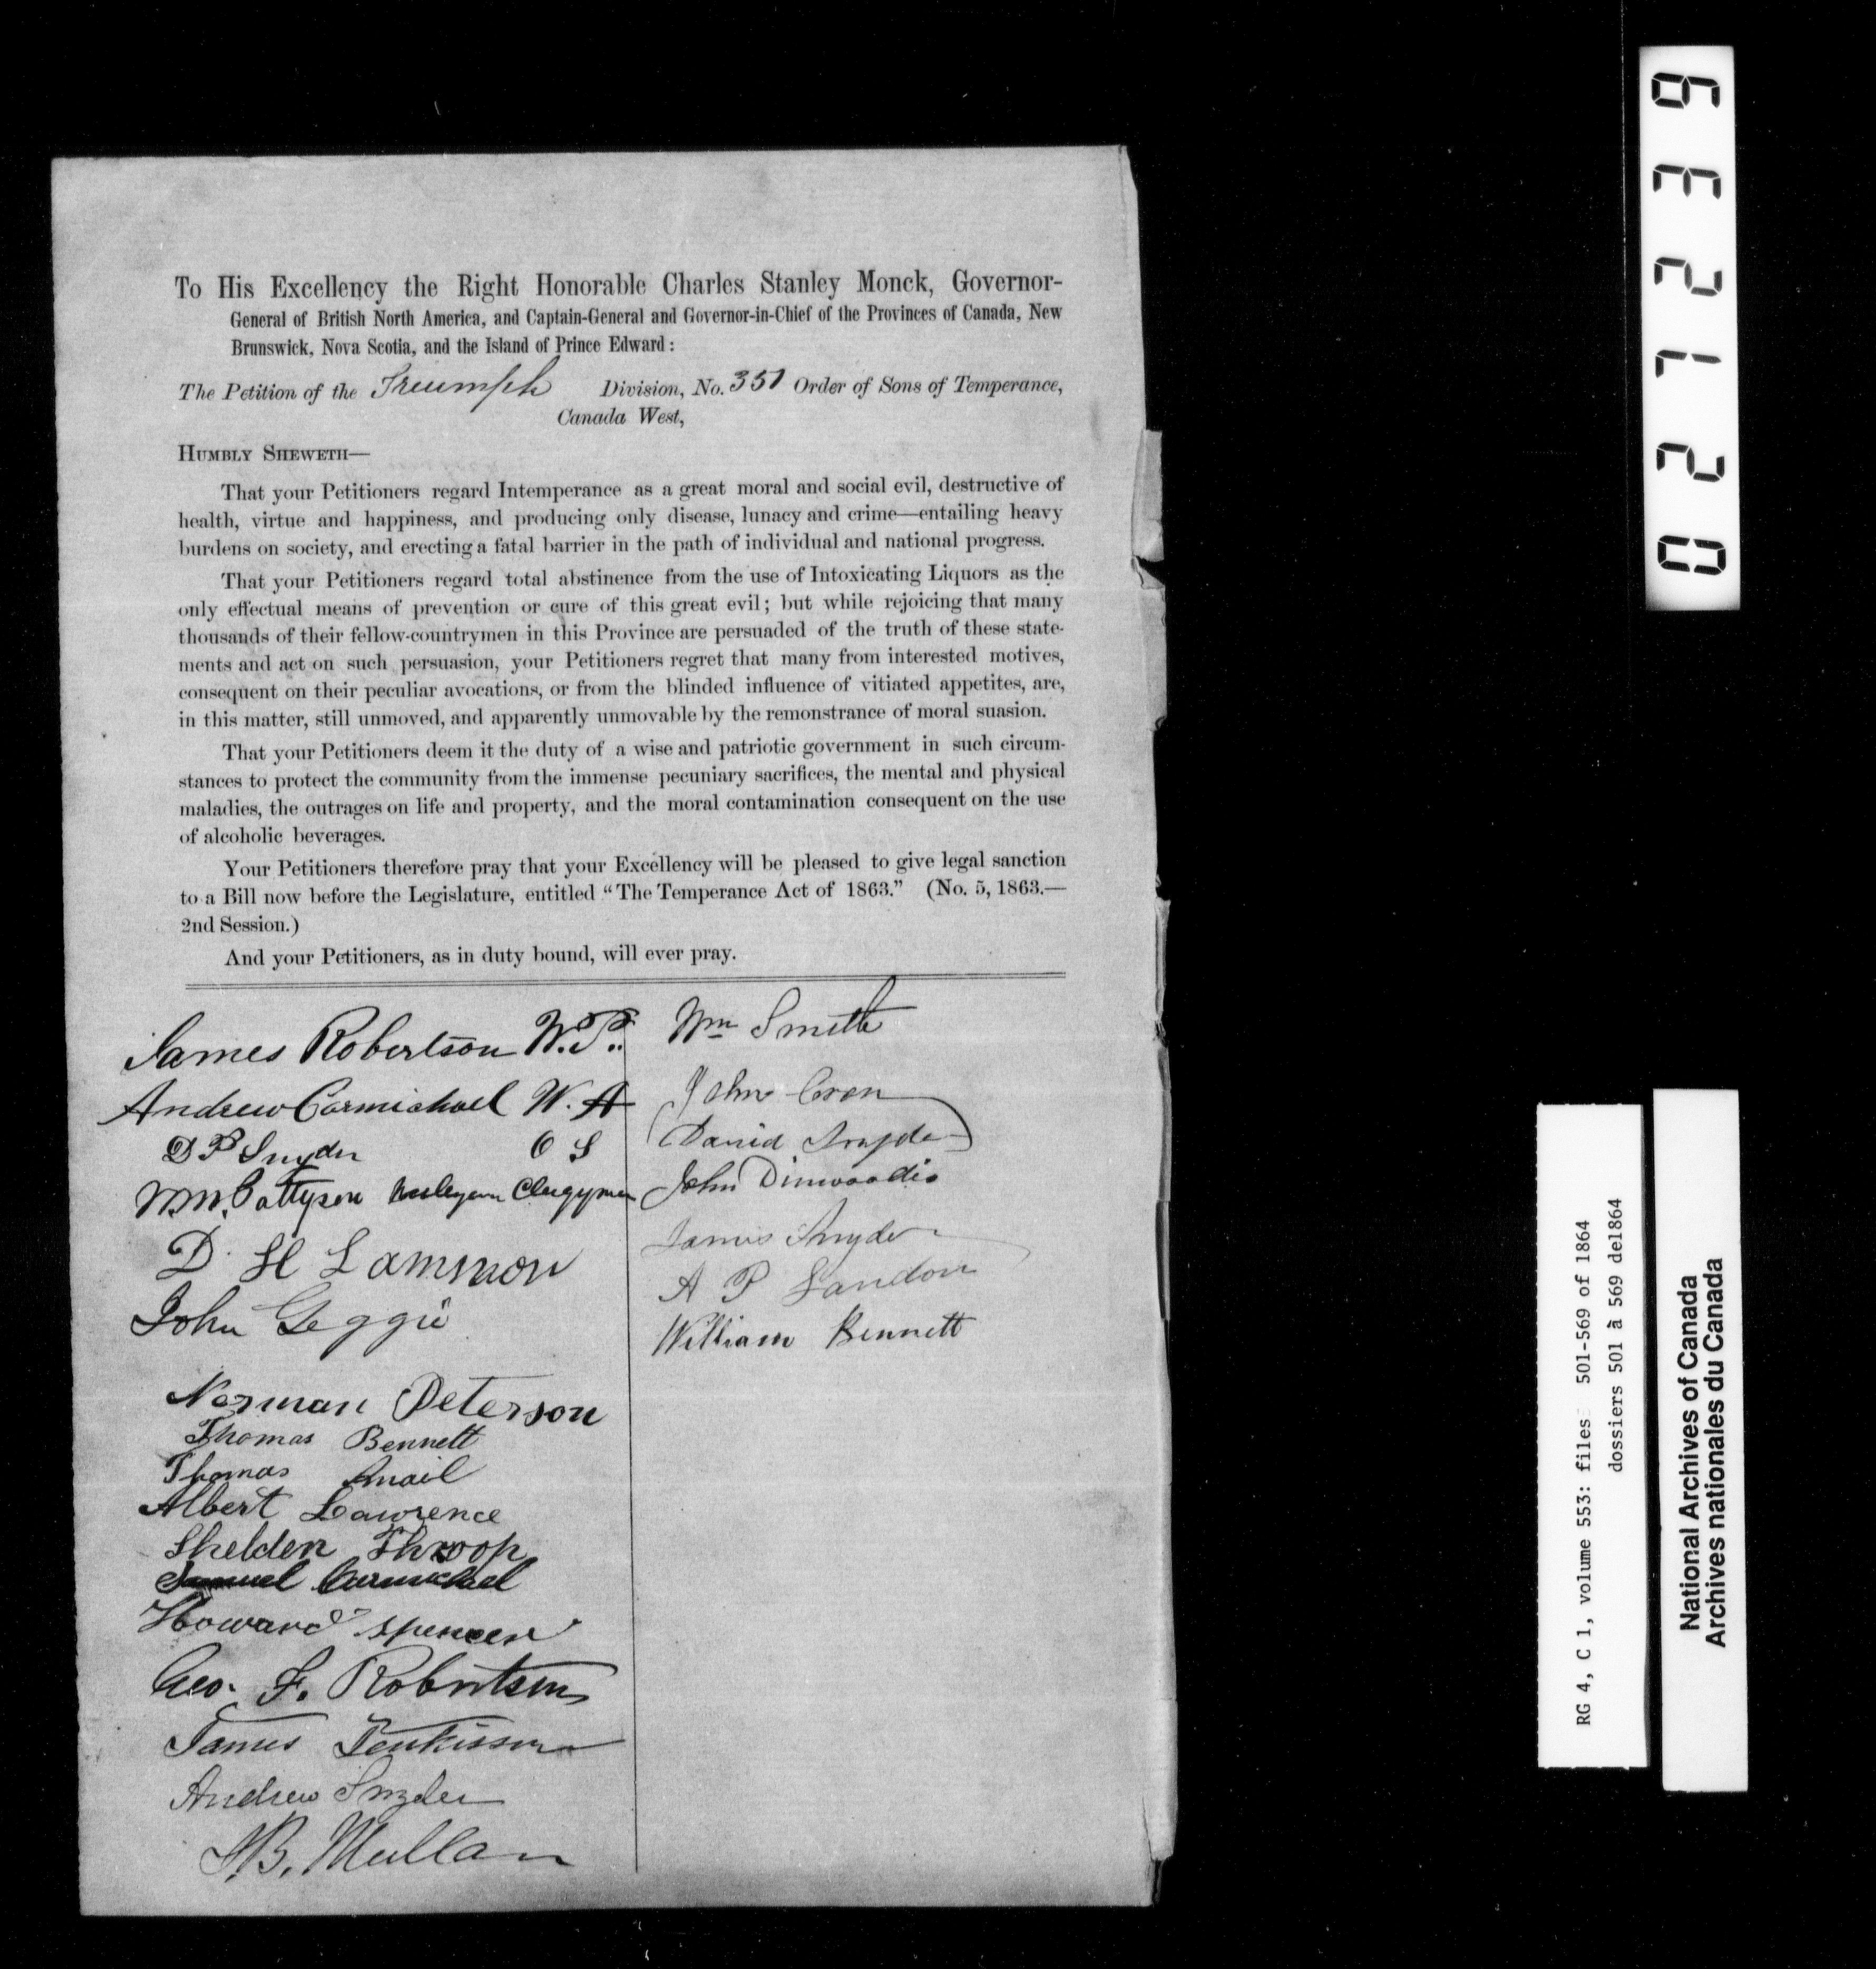 To His Excellency the Right Honorable Charles Stanley Monck, Governor-
General of British North America, and Captain-General and Governor-in-Chief of the Provinces of Canada, New
Brunswick, Nova Scotia, and the Island of Prince Edward:
The Petition of the Treumph Division, No. 351 Order of Sons of Temperance,
Canada West,
HUMBLY SHEWETH—
That your Petitioners regard Intemperance as a great moral and social evil, destructive of
health, virtue and happiness, and producing only disease, lunacy and crime—entailing heavy
burdens on society, and erecting a fatal barrier in the path of individual and national progress.
That your Petitioners regard total abstinence from the use of Intoxicating Liquors as the
only effectual means of prevention or cure of this great evil; but while rejoicing that many
thousands of their fellow-countrymen in this Province are persuaded of the truth of these state-
ments and act on such persuasion, your Petitioners regret that many from interested motives,
consequent on their peculiar avocations, or from the blinded influence of vitiated appetites, are,
in this matter, still unmoved, and apparently unmovable by the remonstrance of moral suasion.
That your Petitioners deem it the duty of a wise and patriotic government in such circum-
stances to protect the community from the immense pecuniary sacrifices, the mental and physical
maladies, the outrages on life and property, and the moral contamination consequent on the use
of alcoholic beverages.
Your Petitioners therefore pray that your Excellency will be pleased to give legal sanction
to a Bill now before the Legislature, entitled "The Temperance Act of 1863." (No. 5, 1863.—
2nd Session.)
And your Petitioners, as in duty bound, will ever pray.
James Robertson W.P.
Andrew Carmichael W. A
D P Snyder O S
Wm. Pattyson Wesleyan Clergyman
D. H Lammon
John Geggie
Norman Peterson
Thomas Bennett
Thomas Smail
Albert Lawrence
Shelden Throop
Samuel Carmichael
Howard Spencer
Geo. F. Robertson
James Jenkisson
Andrew Snyder
B. Mullan
Wm Smith
John
David Snyder
John Dinwoodie
James Snyder
A P Landon
William Bennett
021239
RG 4, C 1, volume 553: files 501-569 of 1864
dossiers 501 à 569 de1864
National Archives of Canada
Archives nationales du Canada